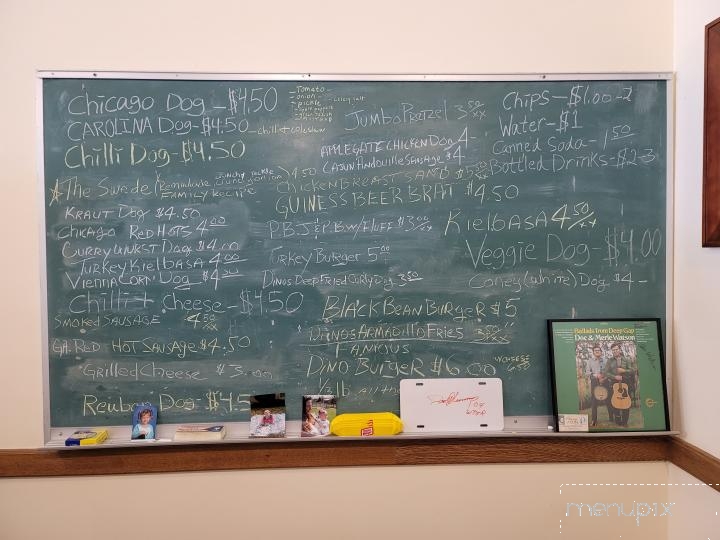 Chicago Dog - $4.50
Tomato
onion
pickle
celery salt
CAROLINA Dog - $4.50 chilli + coleslaw
Chilli Dog - $4.50
The Swede
FAMILY RECIPE
KRAUT Dog $4.50
CHICAGO RED HOTS 4.00
CURRYWURST DOG $4.00
TURKEY KIELBASA 4.00
VIENNA CORN DOG
Chilli + Cheese - $4.50
SMOKED SAUSAGE 4.50
GA. RED HOT SAUSAGE $4.50
Grilled Cheese $3.00
Reuben Dog - $4.5
Jumbo Pretzel 3.50
APPLEGATE CHICKEN DOG 4
CAJUN Andouille SAUSAGE $4
CHICKEN BREAST SAND
GUINESS BEER BRAT $4.50
P.B.J & P.BW/FLUFF $3.00
Turkey Burger 5.00
Dinos Deep Fried Curly Dog 3.50
BLACK BEAN BURGER $5
DINOS ARMADILLO FRIES 3.50
FAMOUS
DINO BURGER $6.00 W/CHEESE 6.50
1/3 lb
Chips - $1.00 - 2
Water - $1
Canned Soda - 1.50
Bottled Drinks - $2-3
Kielbasa 4.50
Veggie Dog - $4.00
Coney (white) Dog $4 -
Ballads from Deep Gap
Doc & Merle Watson
menupix